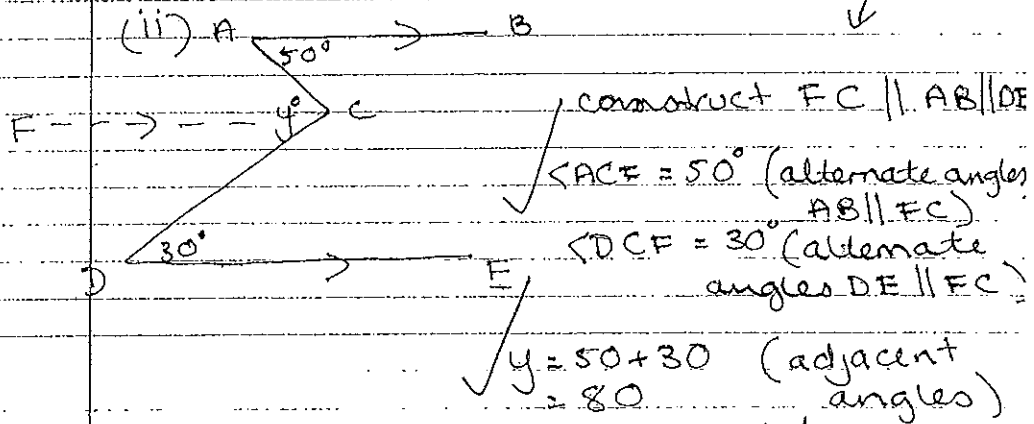 (ii) A 50° B
construct FC || AB||DE
F y° C
<ACF = 50° (alternate angles
AB||FC)
30° <DCF = 30° (alternate
D E angles DE || FC)
y = 50+30 (adjacent
= 80 angles)